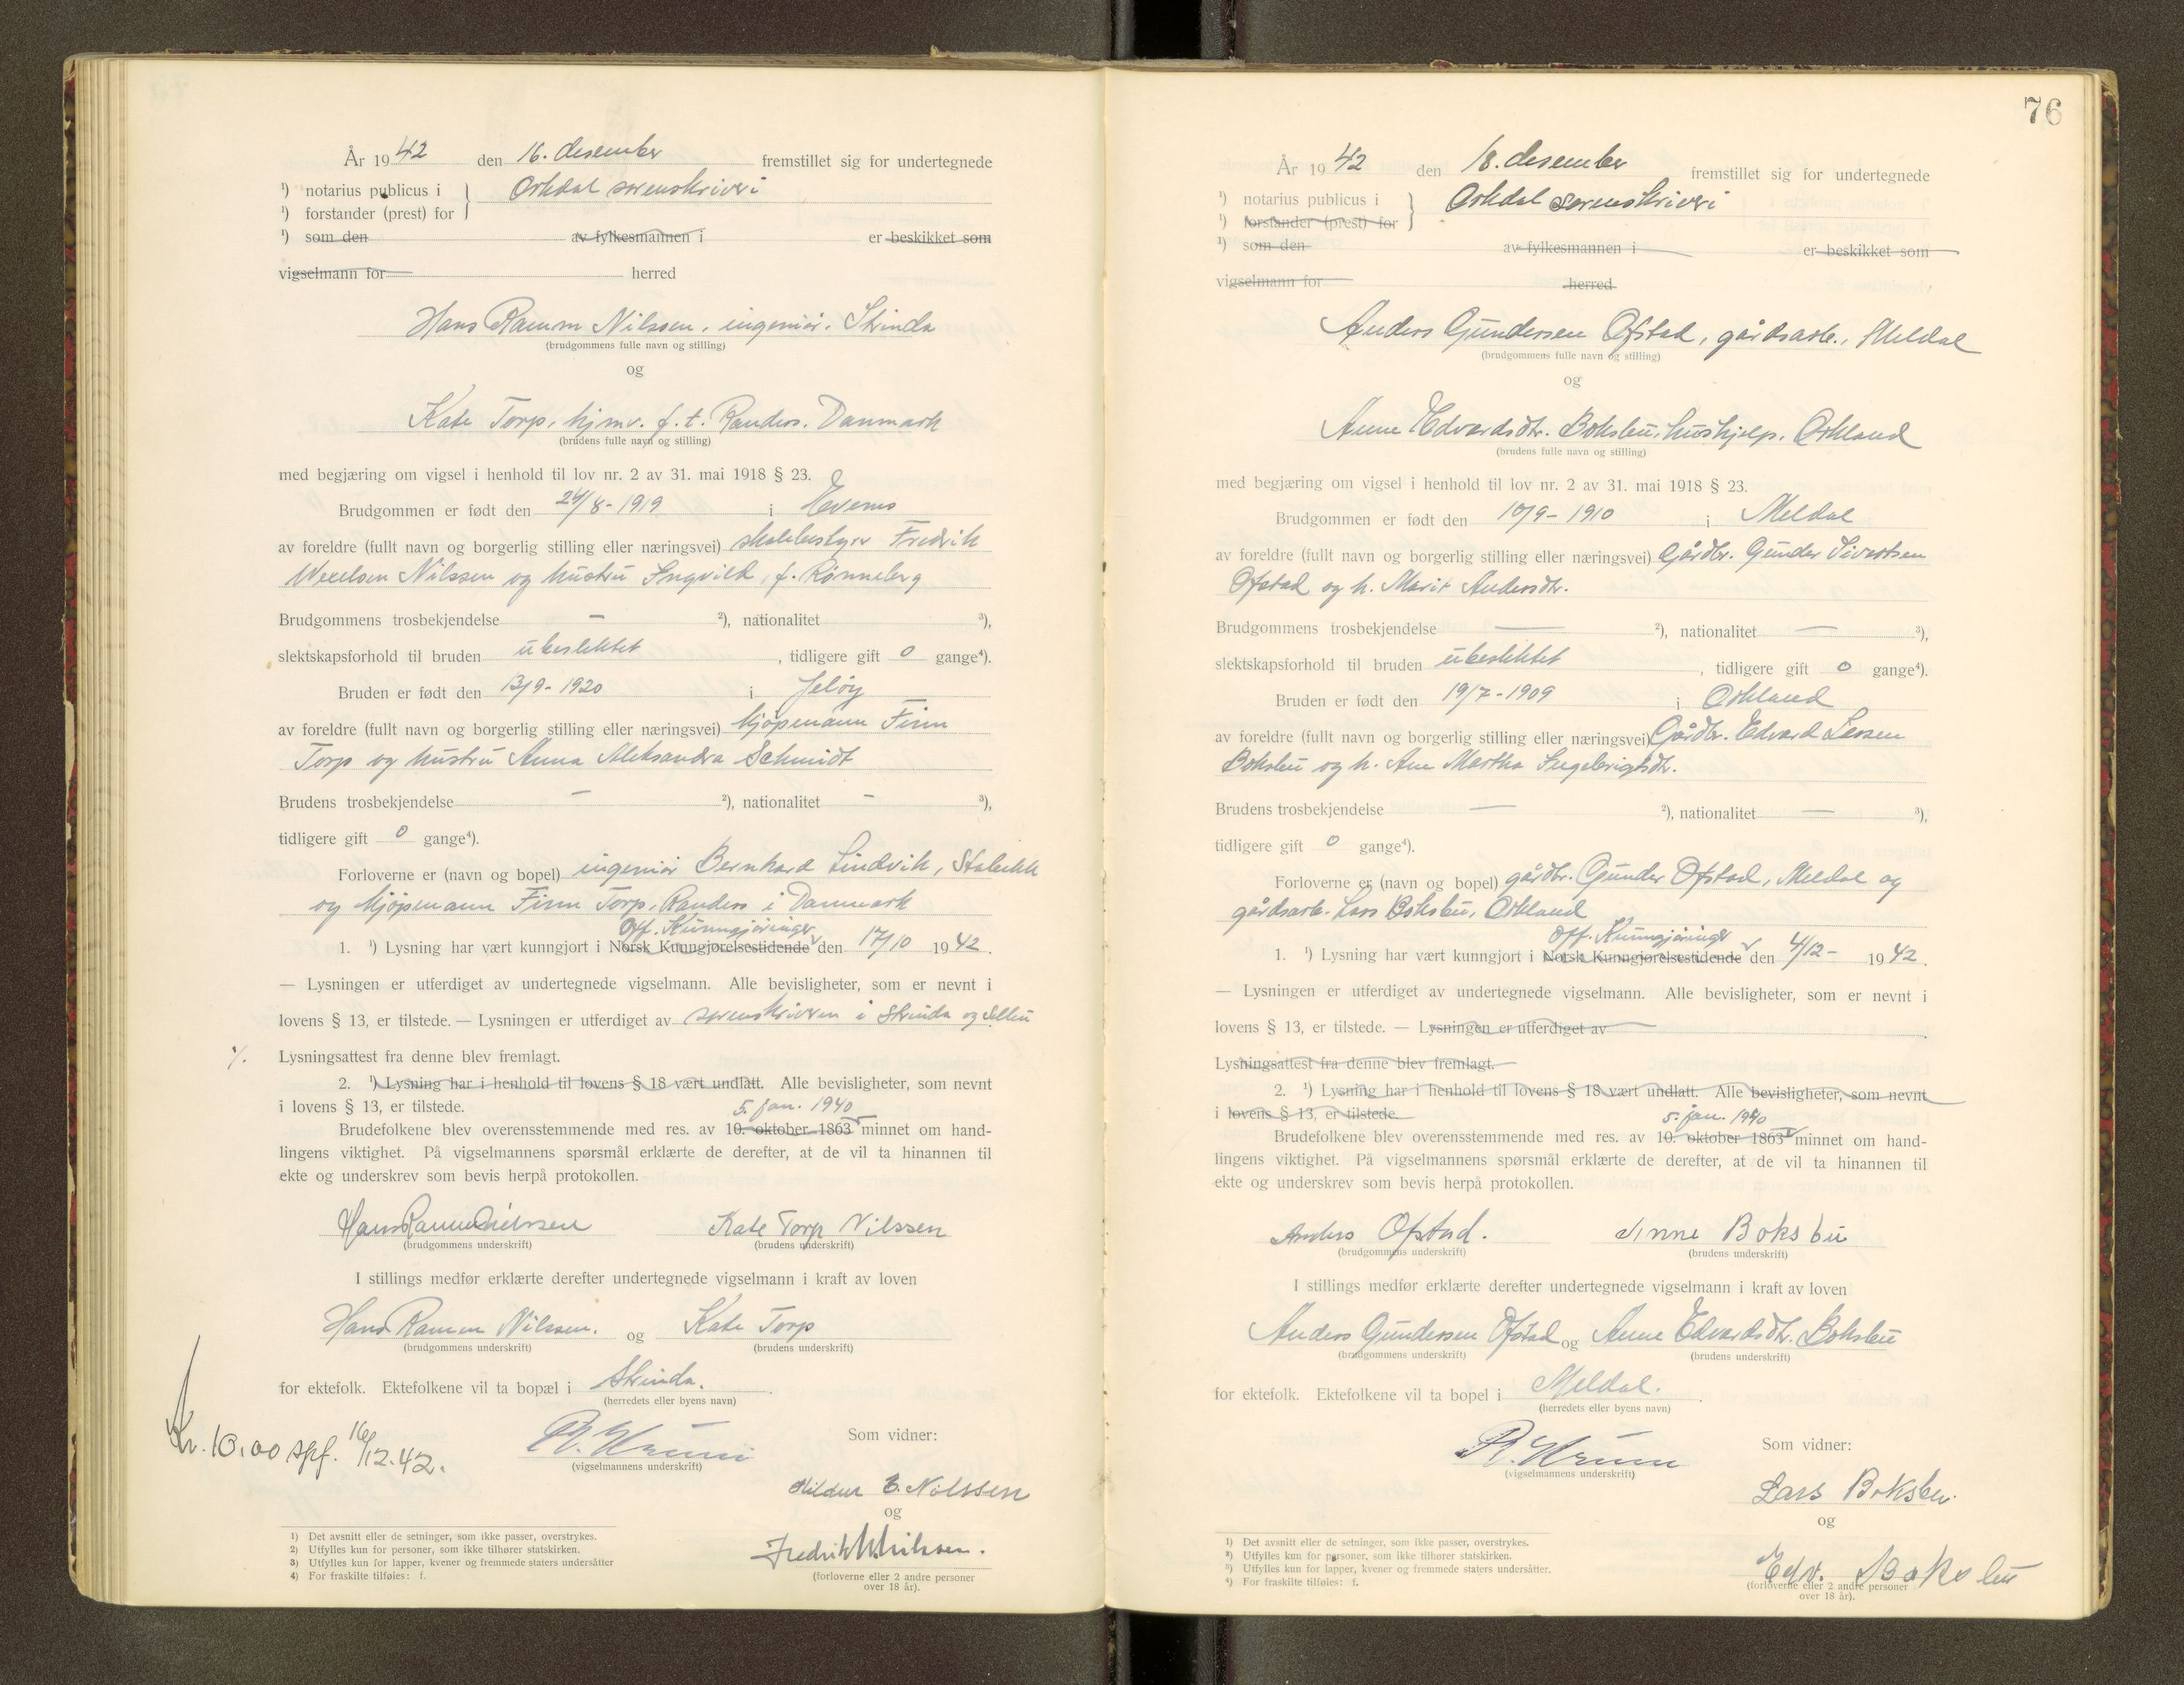 År 1942 den 16. desember fremstillet sig for undertegnede
¹) notarius publicus i } Orkdal sorenskriveri
¹) forstander (prest) for
¹) som den av fylkesmannen i er beskikket som
vigselmann for herred
Hans Ramm Nilssen, ingeniør, Strinda
(brudgommens fulle navn og stilling)
og
Kate Torp, hjmv. f. t. Randers, Danmark
(brudens fulle navn og stilling)
med begjæring om vigsel i henhold til lov nr. 2 av 31. mai 1918 § 23.
Brudgommen er født den 24/8-1919 i Evenes
av foreldre (fullt navn og borgerlig stilling eller næringsvei) skolebestyrer Fredrik
Wexelsen Nilssen og hustru Ingvild, f. Rønneberg
Brudgommens trosbekjendelse — ²), nationalitet ³),
slektskapsforhold til bruden ubeslektet, tidligere gift 0 gange⁴).
Bruden er født den 13/9-1920 i Jeløy
av foreldre (fullt navn og borgerlig stilling eller næringsvei) kjøpmann Finn
Torp og hustru Anna Aleksandra Schmidt
Brudens trosbekjendelse — ²), nationalitet - ³),
tidligere gift 0 gange⁴).
Forloverne er (navn og bopel) ingeniør Bernhard Lindvik, Stabekk
og kjøpmann Finn Torp, Randers i Danmark
Off. Kunngjøringer
1. ¹) Lysning har vært kunngjort i Norsk Kunngjørelsestidende den 17/10 1942.
— Lysningen er utferdiget av undertegnede vigselmann. Alle bevisligheter, som er nevnt i
lovens § 13, er tilstede. — Lysningen er utferdiget av sorenskriveren i Strinda og Selbu
./. Lysningsattest fra denne blev fremlagt.
2. ¹) Lysning har i henhold til lovens § 18 vært undlatt. Alle bevisligheter, som nevnt
i lovens § 13, er tilstede.
5. jan. 1940
Brudefolkene blev overensstemmende med res. av 10. oktober 1863 minnet om hand-
lingens viktighet. På vigselmannens spørsmål erklærte de derefter, at de vil ta hinannen til
ekte og underskrev som bevis herpå protokollen.
Hans Ramm Nilssen Kate Torp Nilssen
(brudgommens underskrift) (brudens underskrift)
I stillings medfør erklærte derefter undertegnede vigselmann i kraft av loven
Hans Ramm Nilssen. og Kate Torp
(brudgommens underskrift) (brudens underskrift)
for ektefolk. Ektefolkene vil ta bopæl i Strinda.
(herredets eller byens navn)
Kr. 10,00 spf. 16/12.42.
Som vidner:
(vigselmannens underskrift)
Hildur E. Nilssen
og
Fredrik W. Nilssen.
(forloverne eller 2 andre personer
over 18 år).
1) Det avsnitt eller de setninger, som ikke passer, overstrykes.
2) Utfylles kun for personer, som ikke tilhører statskirken.
3) Utfylles kun for lapper, kvener og fremmede staters undersåtter
4) For fraskilte tilføies: f.
76
År 1942 den 18. desember fremstillet sig for undertegnede
¹) notarius publicus i } Orkdal sorenskriveri
¹) forstander (prest) for
¹) som den av fylkesmannen i er beskikket som
vigselmann for herred
Anders Gundersen Ofstad, gårdsarb., Meldal
(brudgommens fulle navn og stilling)
og
Anne Edvardsdtr. Boksbu, hushjelp, Orkland
(brudens fulle navn og stilling)
med begjæring om vigsel i henhold til lov nr. 2 av 31. mai 1918 § 23.
Brudgommen er født den 10/9-1910 i Meldal
av foreldre (fullt navn og borgerlig stilling eller næringsvei) Gårdbr. Gunder Sivertsen
Ofstad og h. Marit Andersdtr.
Brudgommens trosbekjendelse — ²), nationalitet — ³),
slektskapsforhold til bruden ubeslektet, tidligere gift 0 gange⁴).
Bruden er født den 19/7-1909 i Orkland
av foreldre (fullt navn og borgerlig stilling eller næringsvei) Gårdbr. Edvard Larsen
Boksbu og h. Ane Martha Ingebrigtsdtr.
Brudens trosbekjendelse — ²), nationalitet — ³),
tidligere gift 0 gange⁴).
Forloverne er (navn og bopel) gårdbr. Gunder Ofstad, Meldal og
gårdsarb. Lars Boksbu, Orkland
Off. Kunngjøringer
1. ¹) Lysning har vært kunngjort i Norsk Kunngjørelsestidende den 4/12- 1942.
— Lysningen er utferdiget av undertegnede vigselmann. Alle bevisligheter, som er nevnt i
lovens § 13, er tilstede. — Lysningen er utferdiget av
Lysningsattest fra denne blev fremlagt.
2. ¹) Lysning har i henhold til lovens § 18 vært undlatt. Alle bevisligheter, som nevnt
i lovens § 13, er tilstede.
5. jan. 1940
Brudefolkene blev overensstemmende med res. av 10. oktober 1863 minnet om hand-
lingens viktighet. På vigselmannens spørsmål erklærte de derefter, at de vil ta hinannen til
ekte og underskrev som bevis herpå protokollen.
Anders Ofstad. Anne Boksbu
(brudgommens underskrift) (brudens underskrift)
I stillings medfør erklærte derefter undertegnede vigselmann i kraft av loven
Anders Gundersen Ofstad og Anne Edvardsdtr. Boksbu
(brudgommens underskrift) (brudens underskrift)
for ektefolk. Ektefolkene vil ta bopel i Meldal.
(herredets eller byens navn)
Som vidner:
(vigselmannens underskrift)
Lars Boksbu.
og
Edv. Boksbu
(forloverne eller 2 andre personer
over 18 år).
¹) Det avsnitt eller de setninger, som ikke passer, overstrykes.
²) Utfylles kun for personer, som ikke tilhører statskirken.
³) Utfylles kun for lapper, kvener og fremmede staters undersåtter.
⁴) For fraskilte tilføies: f.